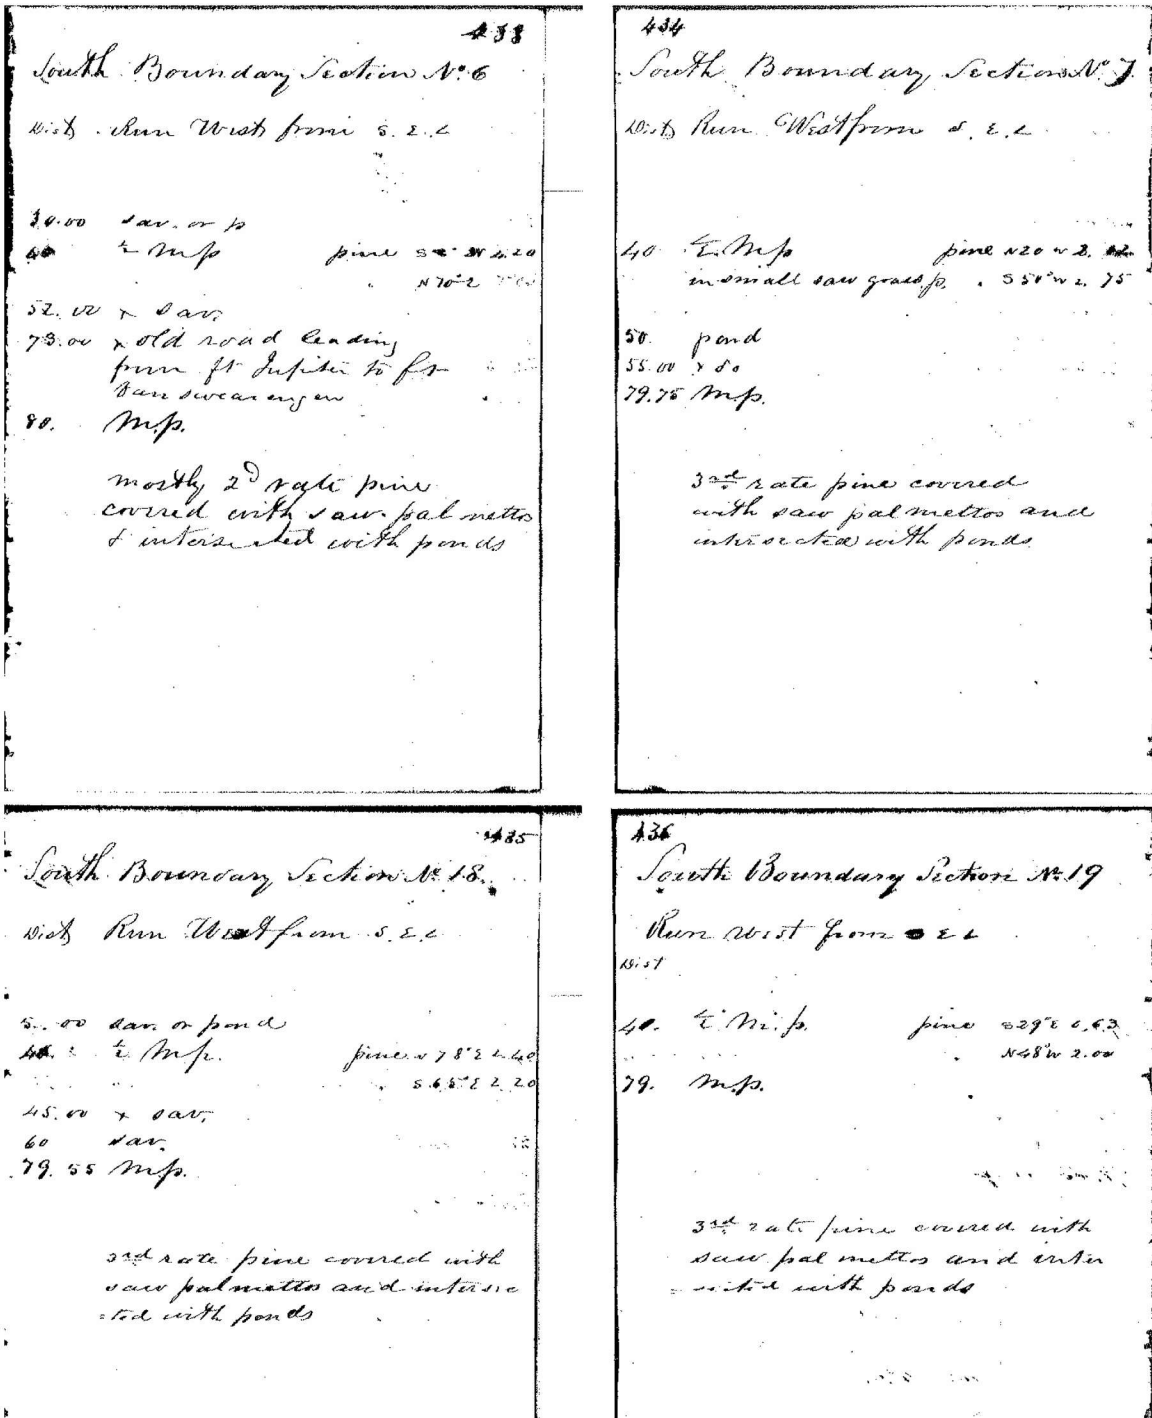 433
South Boundary Section No. 6
Dist. Run West from S. E. C
30.00 sav. or p
40 ½ M.p pine W 2.20
N70°E
52.00 x sav.
73.00 x old road leading
from ft Jupiter to ft
Van swearengen
80. M.p.
mostly 2d rate pine
covered with saw palmettos
& intersected with ponds
434
South Boundary Section No. 7
Dist Run West from S. E. C
40 ½ M.p pine N20 W 2.
in small saw grass p. " S50°W 2. 75
50. pond
55.00 x do
79.75 M.p.
3rd rate pine covered
with saw palmettos and
intersected with ponds
435
South Boundary Section No. 18.
Dist Run West from S. E. C
5.00 sav. or pond
40. ½ M.p. pine N78°E 2.40
" S.65°E 2.20
45.00 x sav.
60 sav.
79.55 M.p.
3rd rate pine covered with
saw palmettos and interse
=cted with ponds
436
South Boundary Section No. 19
Run West from S E C
Dist
40. ½ M.p. pine S29°E 0.63
" N48°W 2.00
79. M.p.
3rd rate pine covered with
saw palmettos and inter
=sected with ponds